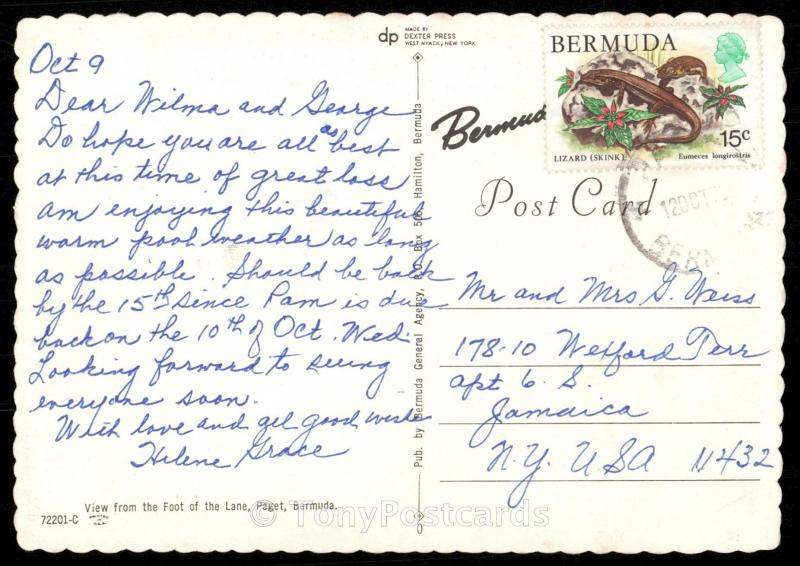 Oct 9
Dear Wilma and George
Do hope you are all as best
at this time of great loss
am enjoying this beautiful
warm pool weather as long
as possible. Should be back
by the 15th since Pam is due
back on the 10th of Oct. Wed.
Looking forward to seeing
everyone soon.
With love and all good wishes
Helene Grace
View from the Foot of the Lane, Paget, Bermuda.
72201-C
dp
MADE BY
DEXTER PRESS
WEST NYACK, NEW YORK
Pub. by Bermuda General Agency, P.O. Box 508, Hamilton, Bermuda
BERMUDA
15c
LIZARD (SKINK)
Eumeces longirostris
Bermud
Post Card
12 OCT
BERM
Mr and Mrs G. Weiss
178-10 Wexford Terr
apt 6 S.
Jamaica
N.Y. USA 11432
© TonyPostcards